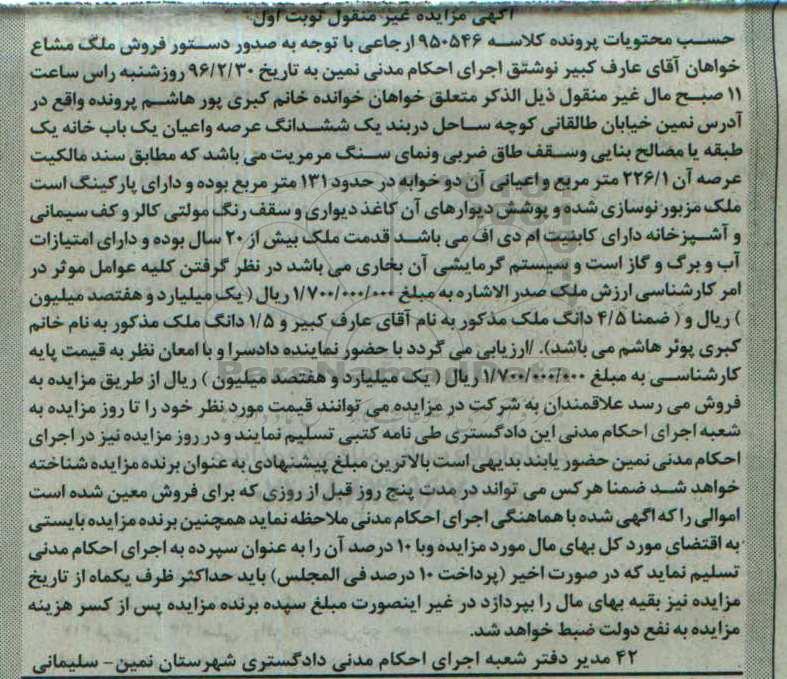 آگهی مزایده غیر منقول نوبت اول
حسب محتویات پرونده کلاسه ۹۵۰۵۴۶ ارجاعی با توجه به صدور دستور فروش ملک مشاع
خواهان آقای عارف کبیر نوشنق اجرای احکام مدنی نمین به تاریخ ۹۶/۲/۳۰ روزشنبه راس ساعت
۱۱ صبح مال غیر منقول ذیل الذکر متعلق خواهان خوانده خانم کبری پور هاشم پرونده واقع در
آدرس نمین خیابان طالقانی کوچه ساحل دربند یک ششدانگ عرصه واعیان یک باب خانه یک
طبقه یا مصالح بنایی وسقف طاق ضربی ونمای سنگ مرمریت می باشد که مطابق سند مالکیت
عرصه آن ۲۲۶/۱ متر مربع و اعیانی آن دو خوابه در حدود ۱۳۱ متر مربع بوده و دارای پارکینگ است
ملک مزبور نوسازی شده و پوشش دیوارهای آن کاغذ دیواری و سقف رنگ مولتی کالر و کف سیمانی
و آشپزخانه دارای کابینت ام دی اف می باشد قدمت ملک بیش از ۲۰ سال بوده و دارای امتیازات
آب و برگ و گاز است و سیستم گرمایشی آن بخاری می باشد در نظر گرفتن کلیه عوامل موثر در
امر کارشناسی ارزش ملک صدر الاشاره به مبلغ ۱/۷۰۰/۰۰۰/۰۰۰ ریال ( یک میلیارد و هفتصد میلیون
) ریال و ( ضمنا ۴/۵ دانگ ملک مذکور به نام آقای عارف کبیر و ۱/۵ دانگ ملک مذکور به نام خانم
کبری پوئر هاشم می باشد). /ارزیابی می گردد با حضور نماینده دادسرا و با امعان نظر به قیمت پایه
کارشناسی به مبلغ ۱/۷۰۰/۰۰۰/۰۰۰ ریال ( یک میلیارد و هفتصد میلیون ) ریال از طریق مزایده به
فروش می رسد علاقمندان به شرکت در مزایده می توانند قیمت مورد نظر خود را تا روز مزایده به
شعبه اجرای احکام مدنی این دادگستری طی نامه کتبی تسلیم نمایند و در روز مزایده نیز در اجرای
احکام مدنی نمین حضور یابند بدیهی است بالاترین مبلغ پیشنهادی به عنوان برنده مزایده شناخته
خواهد شد ضمنا هر کس می تواند در مدت پنج روز قبل از روزی که برای فروش معین شده است
اموالی را که اگهی شده با هماهنگی اجرای احکام مدنی ملاحظه نماید همچنین برنده مزایده بایستی
به اقتضای مورد کل بهای مال مورد مزایده وبا ۱۰ درصد آن را به عنوان سپرده به اجرای احکام مدنی
تسلیم نماید که در صورت اخیر (پرداخت ۱۰ درصد فی المجلس) باید حداکثر ظرف یکماه از تاریخ
مزایده نیز بقیه بهای مال را بپردازد در غیر اینصورت مبلغ سپده برنده مزایده پس از کسر هزینه
مزایده به نفع دولت ضبط خواهد شد.
۴۲ مدیر دفتر شعبه اجرای احکام مدنی دادگستری شهرستان نمین- سلیمانی